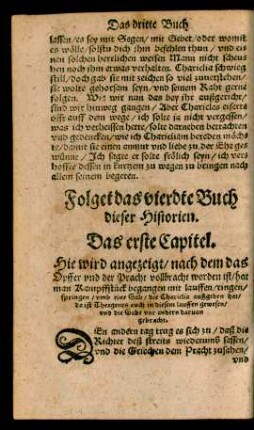 Das dritte Buch
lassen/es sey mit Sagen/mit Gebet/oder womit
es wölle/solstu dich ihm befehlen thun/vnd ei-
nen solchen herrlichen weisen Mann nicht scheus
hen noch ihm etwas verhalten. Chariclia schwieg
still/doch gab sie mit zeichen so viel zuuerstehen/
sie wolte gehorsam seyn/vnd seinem Raht gerne
folgen. Wie wir nun das bey ihr außgericht/
sind wir hinweg gangen/Aber Charicles eiferte
offt auff dem wege/ich solte ja nicht vergessen/
was ich verheissen hette/solte darneben betrachten
vnd gedencken/wie ich Charicliam bereden möch-
te/damit sie einen anmut vnd liebe zu der Ehe ges
wünne/Ich sagte er solte frölich seyn/ich ver-
hoffte/dessen in kurtzem zu wegen zu bringen nach
allem seinem begeren.
Folget das vierdte Buch
dieser Historien.
Das erste Capitel.
Hie wird angezeigt/nach dem das
Opffer vnd der Pracht vollbracht worden ist/hat
man Kampffstück begangen mit lauffen/ringen/
springen/vmb eine Gabe/die Chariclia auffgeben hat/
da ist Theagenes auch in diesem lauffen gewesen/
vnd die Gabe vor andern daruon
gebracht.
DEn andern tag trug es sich zu/daß die
Richter deß streits wiederumb sassen/
vnd die Griechen dem Pracht zusahen/
vnd